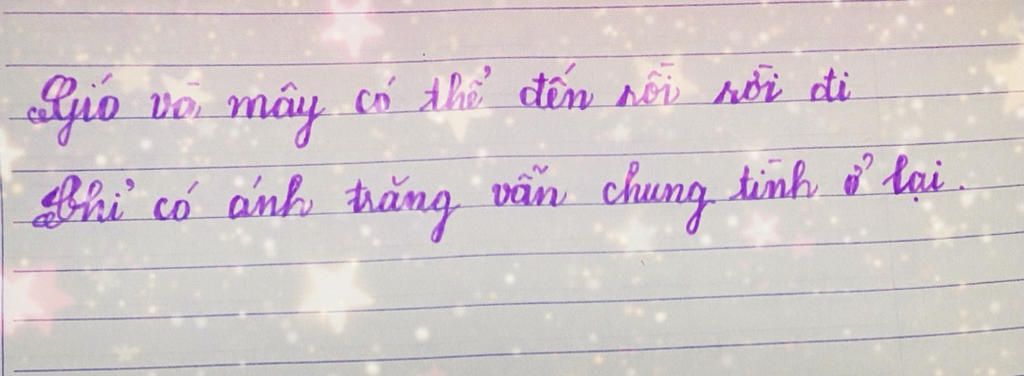 Gió và mây có thể đến rồi rời đi
Chỉ có ánh trăng vẫn chung tình ở lại.